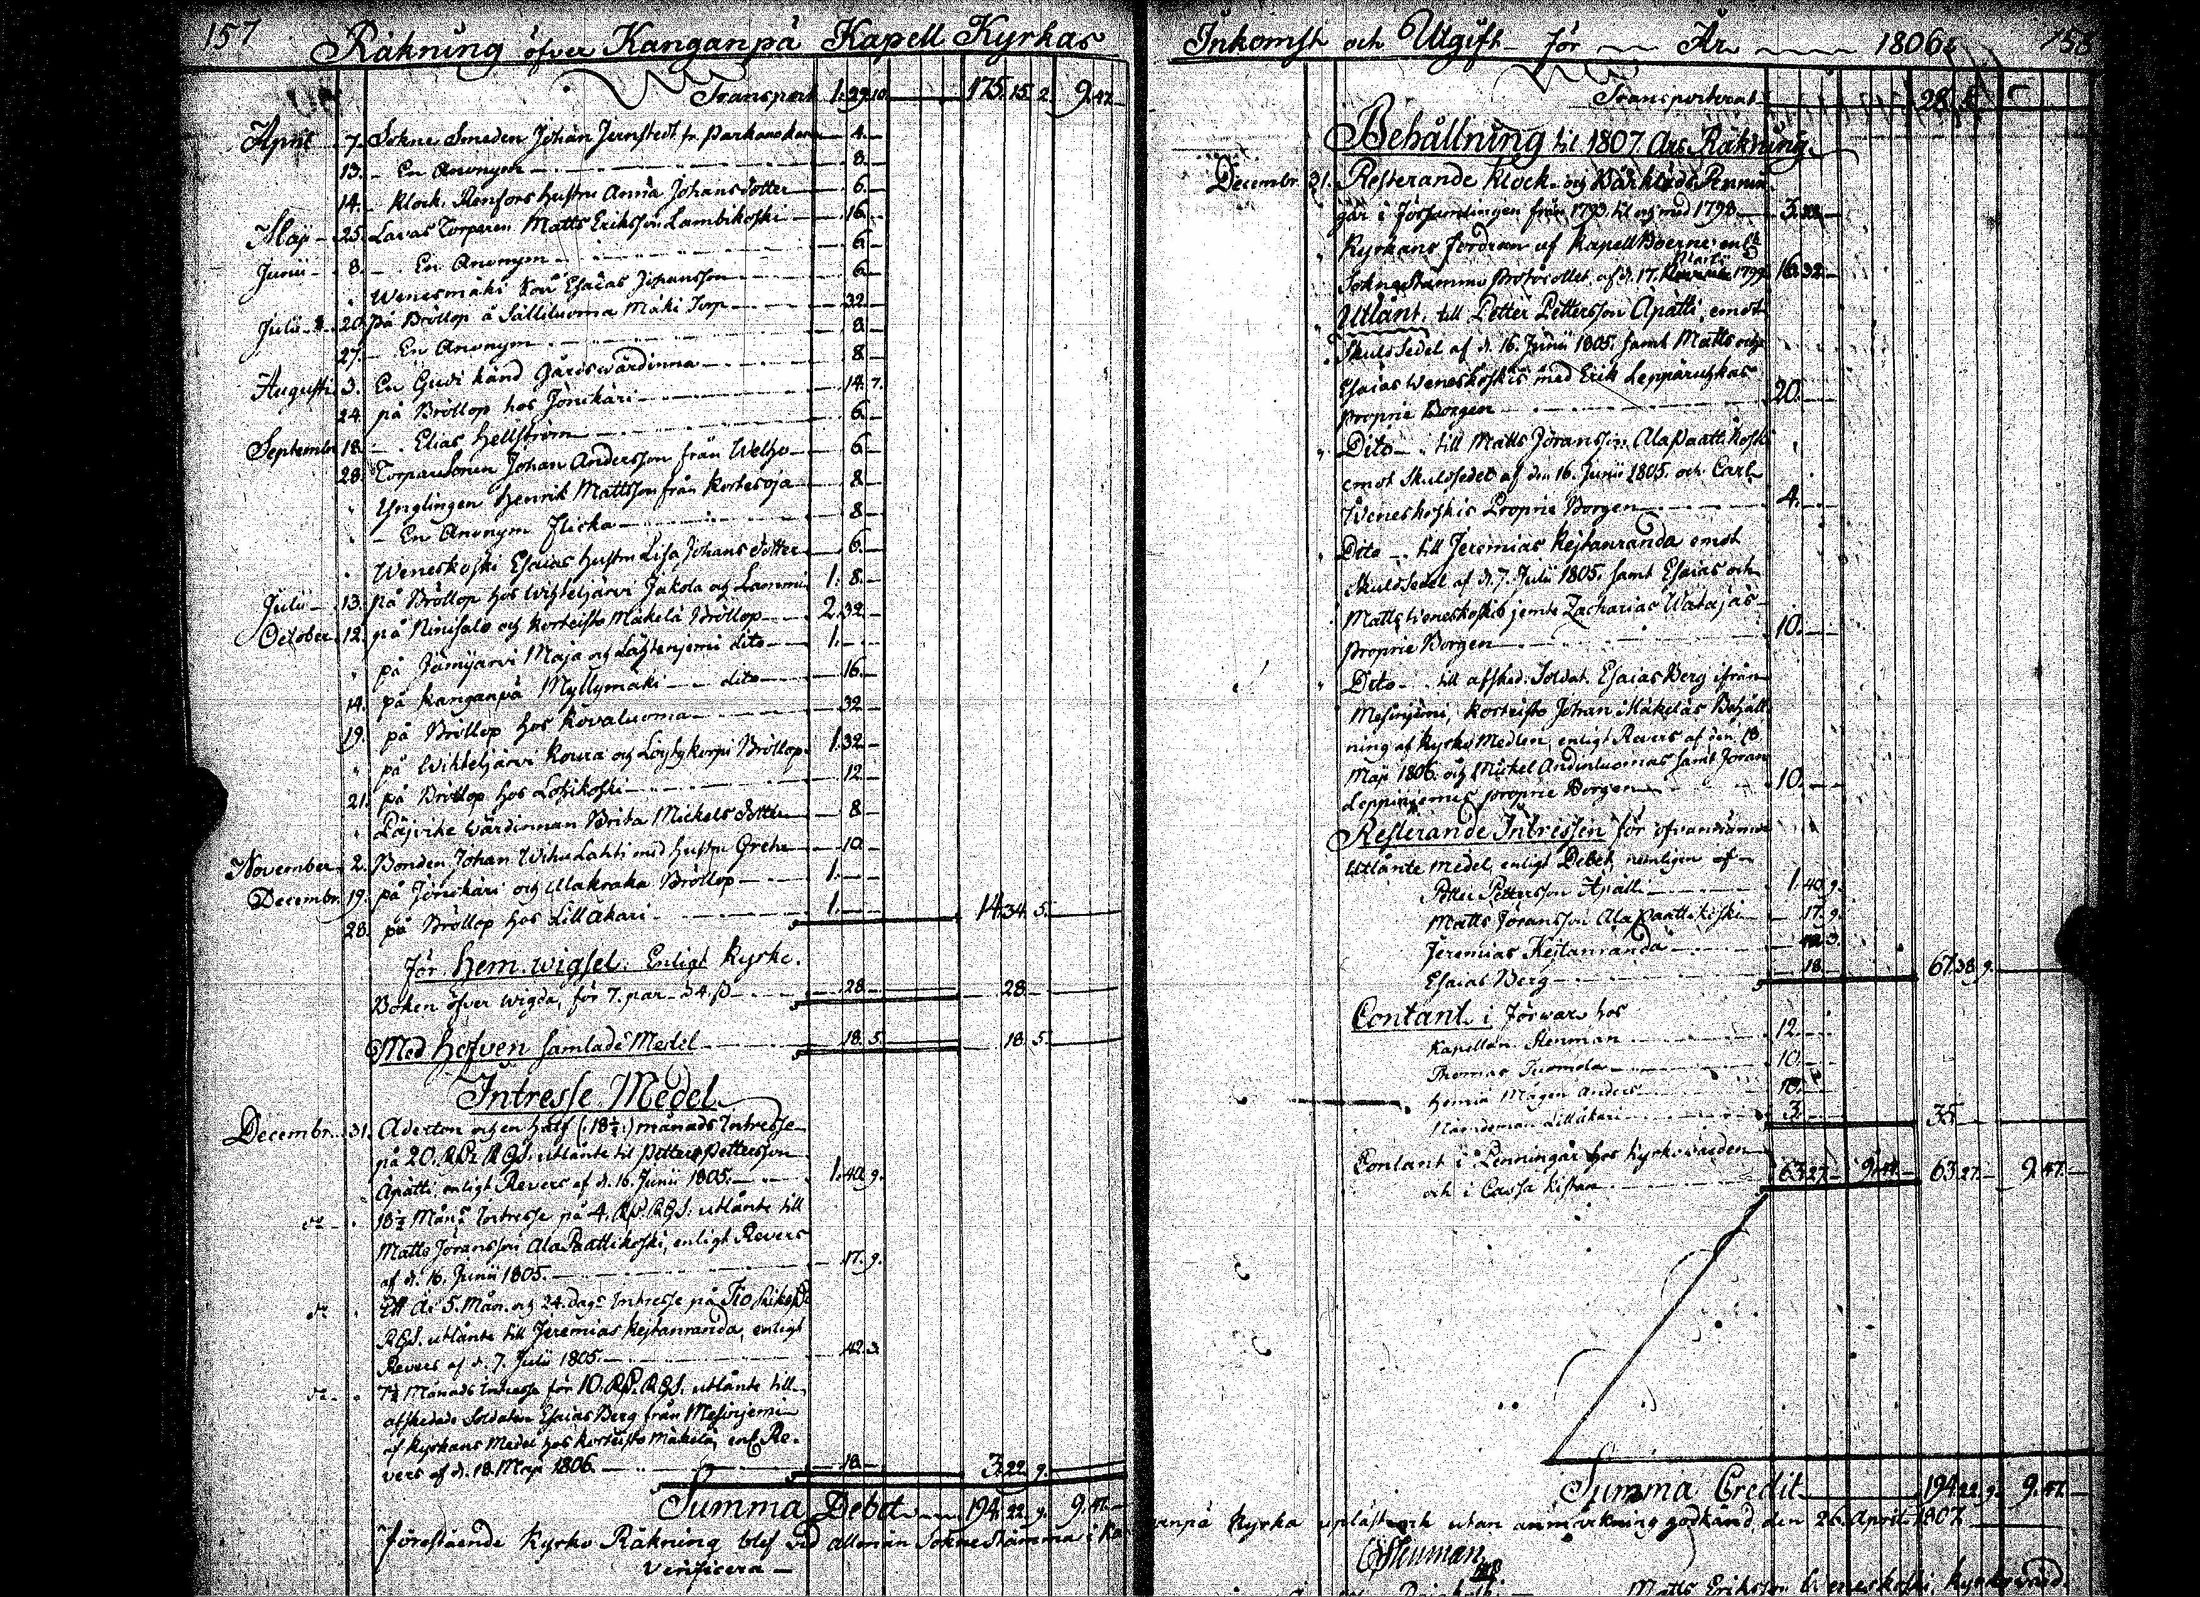 157
Räkning öfver Kanganpä Kapell Kyrkas
Transport 1. 29. 10 175. 15. 2. 9. 47.
April 7. Sokne Smeden Johan Jernstedt fr. Parkano 4.
13. En Anonym 8.
14. Klock. Renfors hustru Anna Johansdotter 6.
Maji 25. Lavas Torparen Matts Eriksson Lambikoski 16.
Junii 8. En Anonym 6.
" Wenesmäki Esaias Johansson 6.
Julii 20. på Bröllop å Sälliluoma Mäki Torp 32.
27. En Anonym 8.
Augusti 3. En Gudi känd Gårdswärdinna 8.
24. på Bröllop hos Jönikäri 14. 7.
Septembr 18. Elias Hellström 6.
28. Torpare Sonen Johan Andersson från Welho 6.
" Ynglingen Henrik Mattsson från Kortesoja 8.
" En Anonym Flicka 8.
" Weneskoski Esaias hustru Lisa Johansdotter 6.
Julii 13. på Bröllop hos Wihteljärvi Jakola och Lammi 1. 8.
October 12. på Niinisalo och Korteisto Mäkelä Bröllop 2. 32.
" på Jämijärvi Maja och Lahtenjemi dito 1.
14. på Kanganpä Myllymäki dito 16.
19. på Bröllop hos Kovaluoma 32
" på Wihteljärvi Koura och Löylykorpi Bröllop 1. 32
21. på Bröllop hos Lohikoski 12
" Wärdinnan Brita Mickelsdotter 8
November 2. Bonden Johan Wihulahti med hustru Greta 10
Decembr 19. på Jönikäri och Bröllop 1.
28. på Bröllop hos Lillakari 1. 14. 34. 5.
För Hem-wigsel. Enligt Kyrko-
Boken öfver wigda, för 7. par à 4 ß 28. 28.
Med Hofven samlade Medel 18. 5. 18. 5.
Intresse Medel
Decembr. 31. Aderton och en half (18½) månads Intresse
på 20. RD. RGS. utlånte til Petter Pettersson
Apatti enligt Revers af d. 16 Junii 1805. 1. 40. 9.
18½ Mån. Intresse på 4. RD. RGS. utlånte till
Matts Jöransson AlaPaattikoski, enligt Revers
af d. 16. Junii 1805. 17. 9.
Ett År 5. Mån. och 24. dagr Intresse på Tio RiksD.
RGS. utlånte till Jeremias Kejtanranda, enligt
Revers af d. 7. Julii 1805. 42. 3.
7½ Månads Intresse för 10. RD. RGS. utlånte till
afskedade Soldaten Esaias Berg från Mesinjemi
af Kyrkans Medel hos Korteisto Mäkelä, enl. Re-
vers af d. 18. Maji 1806. 18. 3. 22. 9.
Summa Debet 194. 22. 9. 9. 47.
Förestående Kyrko Räkning blef vid allmän Sockne Stämma i Ka-
Verificera
Inkomst och Utgift för År 1806. 158
Transporterat 28.
Behållning til 1807. Års Räkning.
Decembr 31. Resterande Klock- och Pennin-
gar i Församlingen från 1793. til och med 1798
" Kyrkans fordran af Kapell Boerne, enl.
Sokne Stämmo Protocollet af d. 17. Martii 1799 16. 32.
" Utlånt. till Petter Pettersson Apatti, emot
Skuldsedel af d. 16. Junii 1805. samt Matts och
Esaias Weneskoskis med Erik Lepparuhkas
proprie Borgen 20.
" Dito till Matts Jöransson AlaPaattikoski
emot Skuldsedel af den 16. Junii 1805. och Carl
Weneskoskis Proprie Borgen 4.
" Dito till Jeremias Kejtanranda emot
Skuldsedel af d. 7. Julii 1805. samt Esaias och
Matts Weneskoskis jemte Zacharias Watajas
proprie Borgen 10.
" Dito till afsked. Soldat. Esaias Berg ifrån
Mesinjemi, Korteisto Johan Mäkeläs Behåll-
ning af Kyrko Medlen, enligt Revers af den 18.
Maji 1806. och Mickel Andinluomas samt Jöran
Leppinjemis proprie Borgen 10.
Resterande Intressen för ofvannämde
utlånte medel, enligt Debet, nemligen af
Petter Pettersson Apatti 1. 40. 9.
Matts Jöransson AlaPaattikoski 17. 9.
Jeremias Kejtanranda 42. 3.
Esaias Berg 18. 67. 38. 9.
Contant i förvar hos
Kapellan Stenman 12.
Thomas Tuomola 10.
Mågen Anders 10.
Nämdeman Lillakari 3. 35.
Contant i Penningar hos Kyrkovärden
och i Cassa Kistan 63. 27. 9. 47. 63. 27. 9. 47.
Summa Credit 194. 22. 9. 9. 47.
anpä Kyrka upläst och utan anmärkning godkänd, den 26. April 1807
Stenman
Matts Eriksson Weneskoski, kyrkovärd.